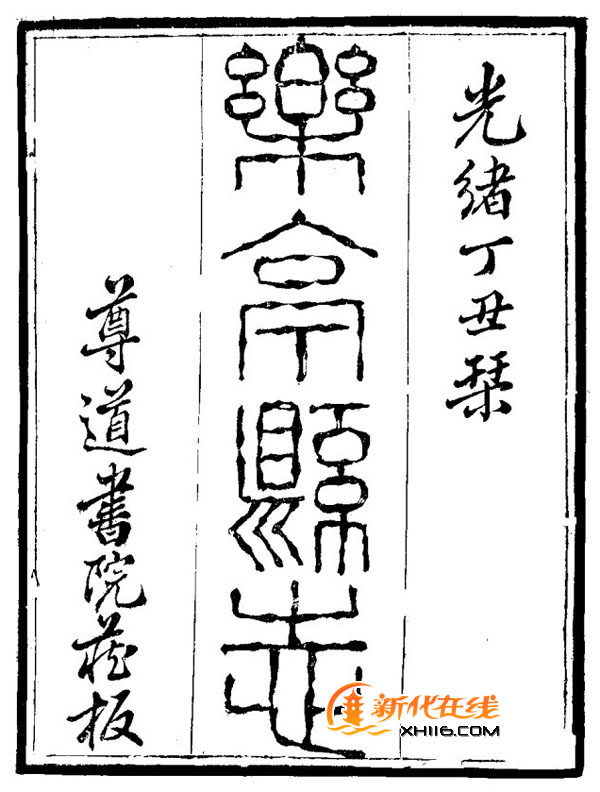 光緒丁丑栞
樂亭縣志
尊道書院藏板
新化在线
XHI16.COM